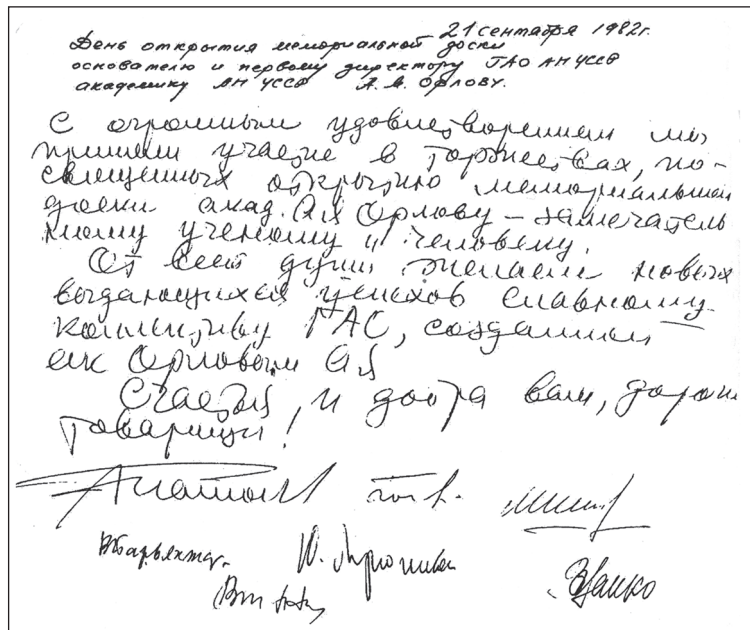 21 сентября 1982г.
День открытия мемориальной доски
основателю и первому директору ГАО АН УССР
академику АН УССР А.Я. Орлову.
С огромным удовлетворением мы
приняли участие в торжествах, по-
священных открытию мемориальной
доски акад. А.Я Орлову – замечатель
ному ученому и человеку.
От всей души желаем новых
выдающихся успехов славному
коллективу ГАО, созданному
Орловым А.Я
Счастья, и добра вам, дороги
товарищи!